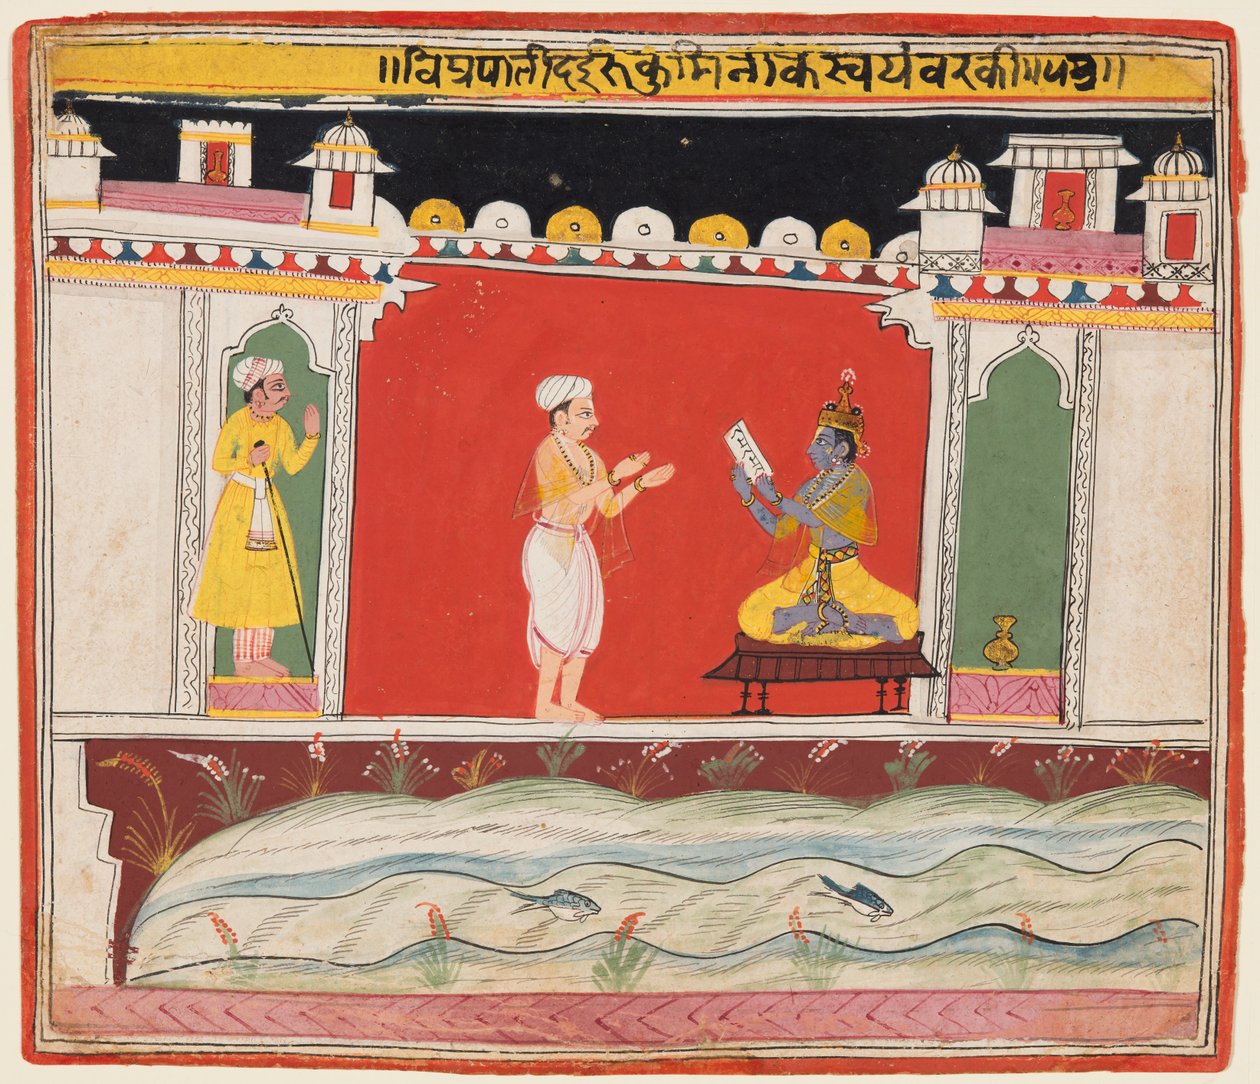 ॥विप्रपातीदईरुकुमिनाकस्वयंवरकी॥